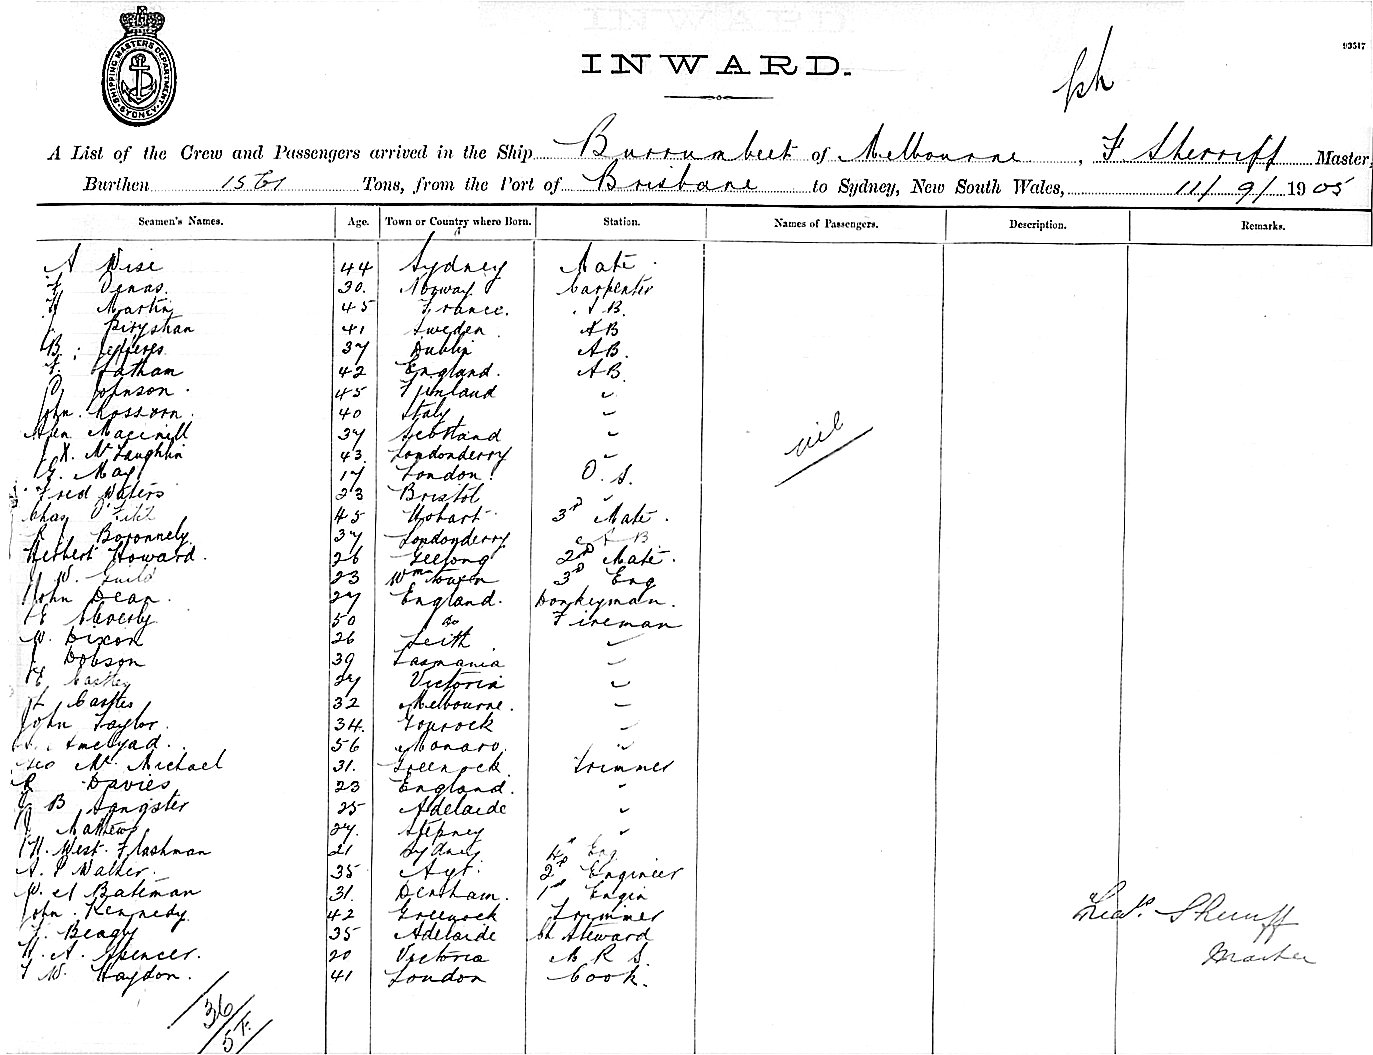 SHIPPING MASTERS DEPARTMENT SYDNEY
93517
INWARD.
A List of the Crew and Passengers arrived in the Ship Burrumbeet of Melbourne, F Sherriff Master,
Burthen Tons, from the Port of Brisbane to Sydney, New South Wales, 11/9/1905
Seamen's Names. Age. Town or Country where Born. Station. Names of Passengers. Description. Remarks.
A Wise 44 Sydney Mate
30 Norway Carpenter
H Martin 45 France. AB
41 Sweden AB
B. Jefferes 37 Dublin AB.
F. Latham 42 England. AB
Johnson 45 Finland "
John 40 Italy "
37 Scotland "
McLaughlin 43 Londonderry "
G. May 17 London. O.S.
nil
Fred Waters 23 Bristol "
Chas 45 Hobart 3rd Mate.
37 Londonderry AB
Herbert Howard. 26 Geelong 2nd Mate.
W. Guild 23 Wm Town 3rd Eng
John Dean. 27 England. Donkeyman.
50 do Fireman
W. Dixon 26 Leith "
J Dobson 39 Tasmania "
E 27 Victoria "
Castles 32 Melbourne. "
John Taylor. 34. Gourock "
56 Monaro. "
Geo McMichael 31. Greenock Trimmer
R Davies 23 England. "
J B Sangster 25 Adelaide "
J Mathews 27. Stepney "
H. West Flashman 21 Sydney 4th Eng
A. P Walker. 35 Ayr. 2nd Engineer
W. A Bateman 31. 1st Engin
John. Kennedy 42 Greenock Trimmer
J. Beagy 35 Adelaide Ch Steward
H. A. Spencer. 20 Victoria M R S.
F W. Haydon. 41 London Cook.
Sherriff
Master
36